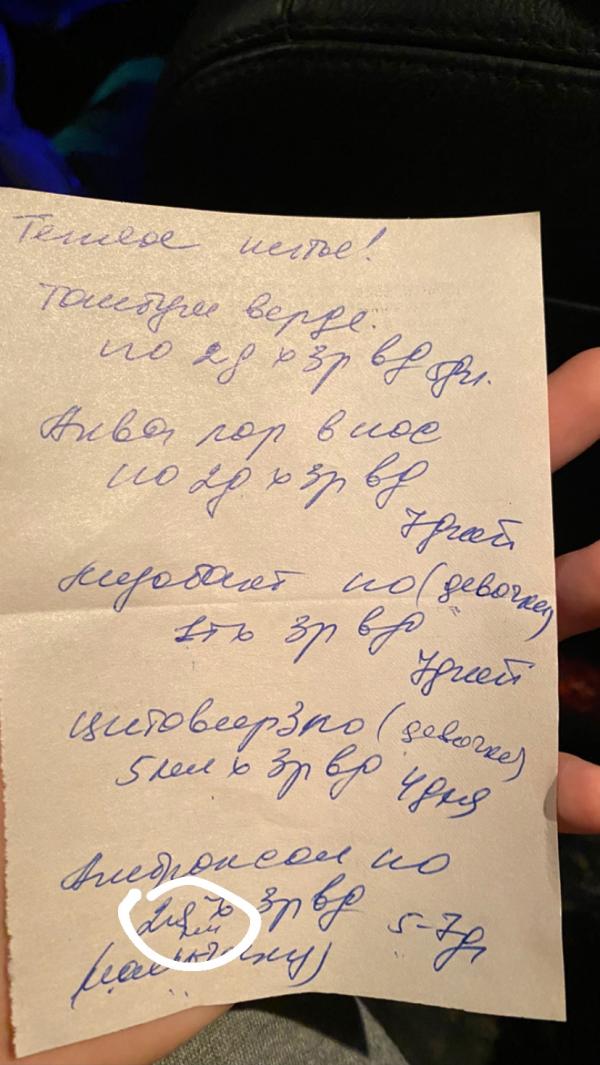 Теплое питье!
Тантум верде.
по 2д х 3р вд
Аква лор в нос
по 2д х 3р вд
7 дней
по (девочке)
1т х 3р вд
7 дней
Цитовир 3 по (девочке)
5мл х 3р вд 4 дня
Амброксол по
3р вд 5-7д
(мальчику)